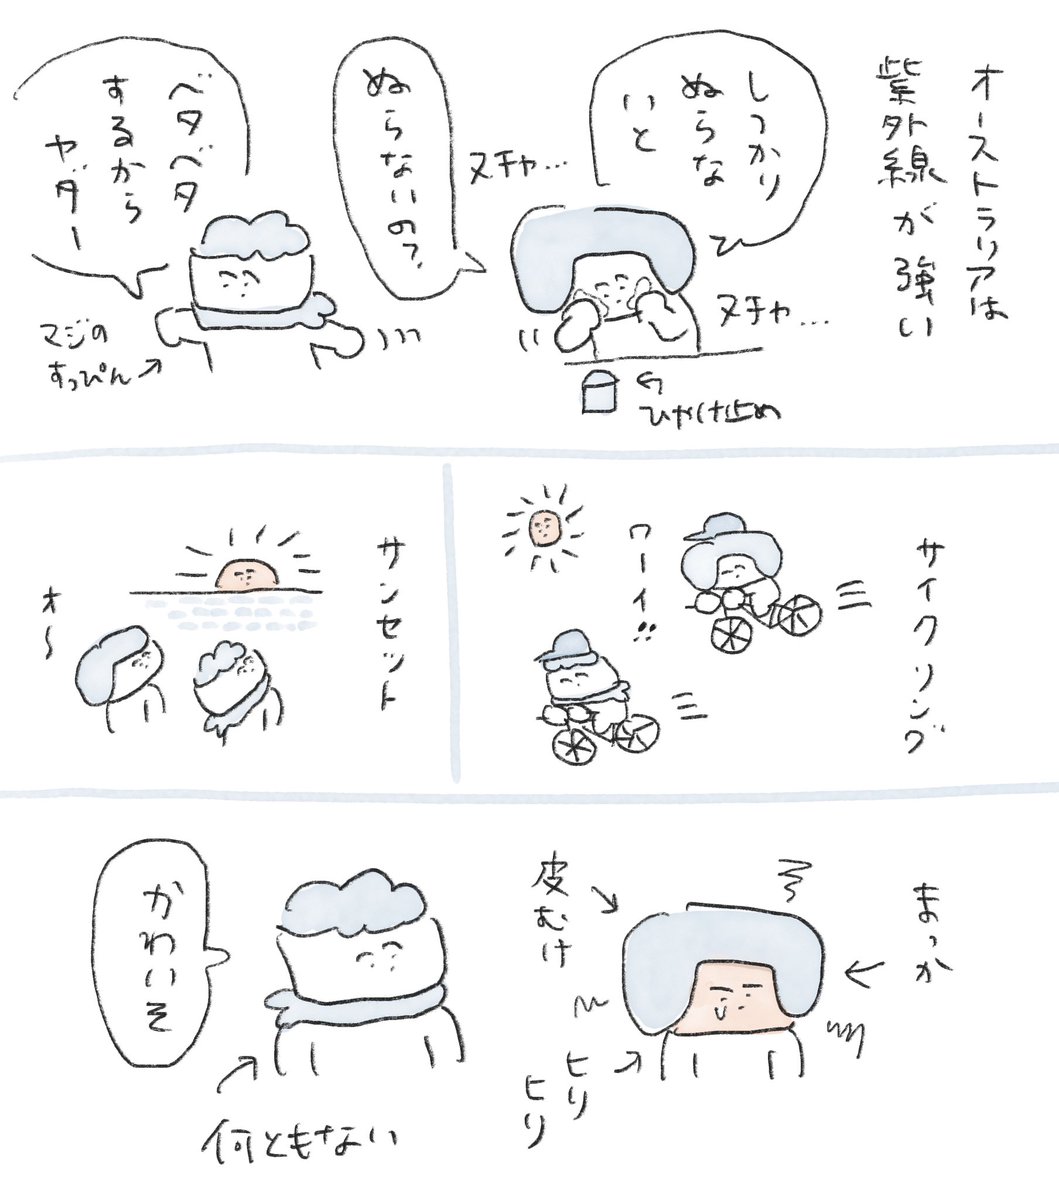 オーストラリアは
紫外線が強い
しっかり
ぬらな
いと
ヌチャ…
ヌチャ…
ひやけ止め
ぬらないの?
ベタベタ
するから
ヤダー
マジの
すっぴん
サイクリング
ワーイ!!
サンセット
オ〜
まっか
皮むけ
ヒリ
ヒリ
かわいそ
何ともない